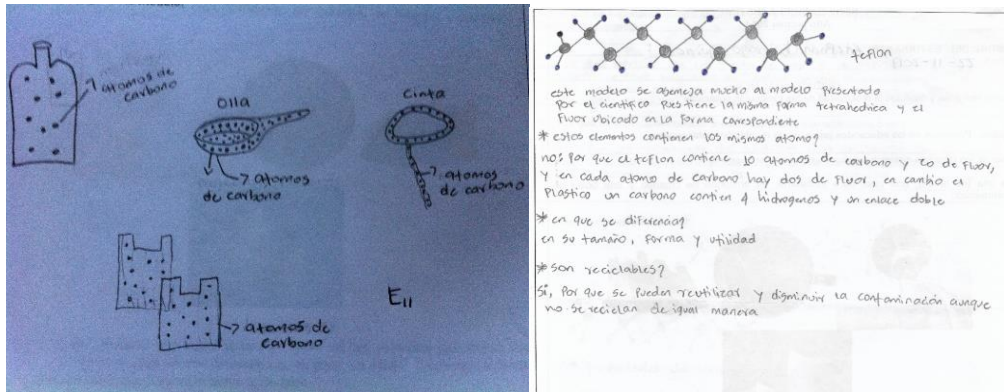 atomos de
carbono
Olla
atomos
de carbono
Cinta
atomos
de carbono
E11
atomos de
carbono
teflon
este modelo se asemeja mucho al modelo presentado
Por el cientifico Pues tiene la misma forma tetrahedrica y el
Fluor ubicado en la forma correspondiente
* estos elementos contienen los mismos atomo?
no; Por que el teflon contiene 10 atomos de carbono y 20 de Fluor,
y en cada atomo de carbono hay dos de Fluor, en cambio el
Plastico un carbono contien 4 hidrogenos y un enlace doble
* en que se diferencia?
en su tamaño, forma y utilidad
* son reciclables?
si, Por que se pueden reutilizar y disminuir la contaminación aunque
no se reciclan de igual manera